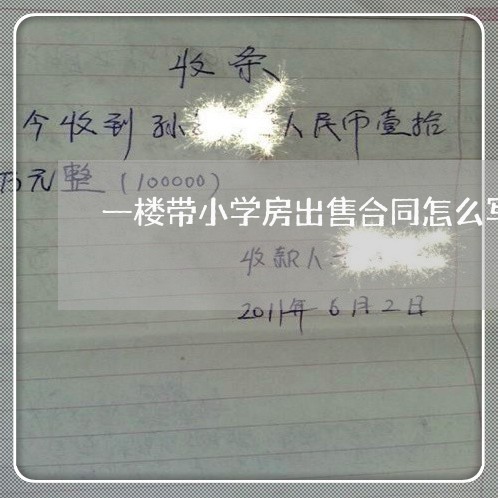 收条
今收到孙 人民币壹拾
万元整(100000)
一楼带小学房出售合同怎么写
收款人
2011年6月2日